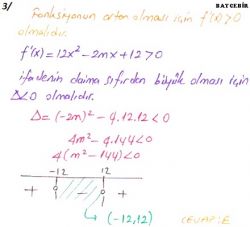 3/
BAYCEBİR
Fonksiyonun artan olması için f'(x) > 0
olmalıdır.
f'(x) = 12x² - 2mx + 12 > 0
ifadenin daima sıfırdan büyük olması için
Δ<0 olmalıdır.
Δ = (-2m)² - 4.12.12 < 0
4m² - 4.144 < 0
4(m² - 144) < 0
-12 12
+ - +
(-12, 12)
CEVAP: E